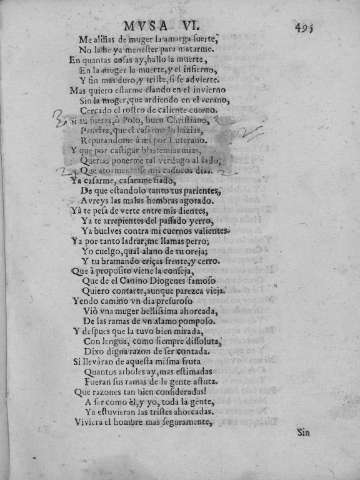 MVSA VI.
495
Me alistas de muger la amarga suerte,
No la he ya menester para matarme.
En quantas cosas ay, hallo la muerte,
En la muger la muerte, y el infierno,
Y fin mas duro, y triste, si se advierte.
Mas quiero estarme elando en el invierno
Sin la muger, que ardiendo en el verano,
Cercado el rostro de caliente cuerno.
Si tu fueras, ò Polo, buen Christiano,
que el casarme lo hazias,
Reputandome à mi por Luterano.
Y que por castigar blasfemias mias,
Querias ponerme tal verdugo al lado,
Que atormentasse mis caducos dias.
Ya casarme, casarame fiado,
De que estandolo tanto tus parientes,
Avreys las malas hembras agotado.
Ya te pesa de verte entre mis dientes,
Ya te arrepientes del passado yerro,
Ya buelves contra mi cuernos valientes.
Ya por tanto ladrar, me llamas perro;
Yo cuelgo, qual alano de tu oreja;
Y tu bramando eriças frente, y cerro.
Que à proposito viene la conseja,
Que de el Canino Diogenes famoso
Quiero contarte, aunque parezca vieja.
Yendo camino vn dia presuroso
Viò vna muger bellissima ahorcada,
De las ramas de vn alamo pomposo.
Y despues que la tuvo bien mirada,
Con lengua, como siempre dissoluta,
Dixo digna razon de ser contada.
Si llevàran de aquesta misma fruta
Quantos arboles ay, mas estimadas
Fueran sus ramas de la gente astuta.
Que razones tan bien consideradas!
A ser como èl, y yo, toda la gente,
Ya estuvieran las tristes ahorcadas.
Viviera el hombre mas seguramente,
Sin